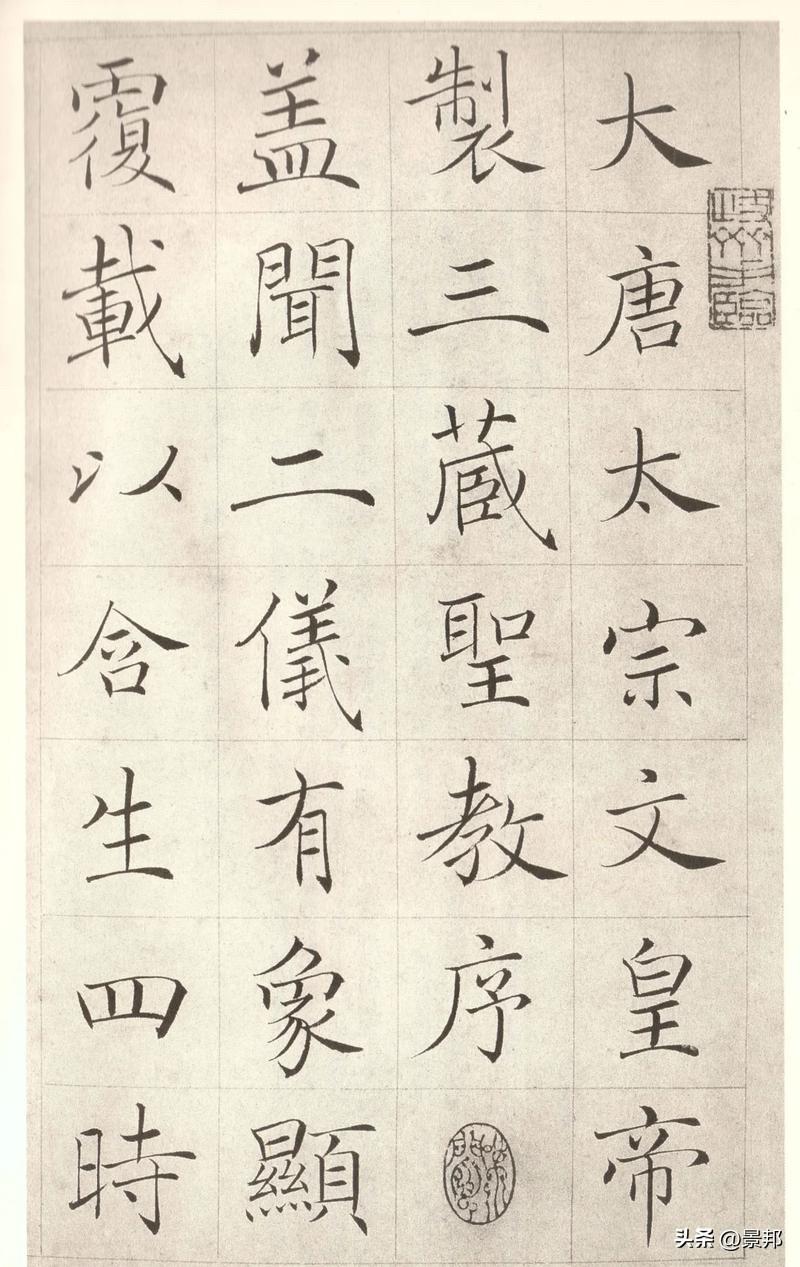 大唐太宗文皇帝
製三藏聖教序
蓋聞二儀有象顯
覆載以含生四時
头条 @景邦